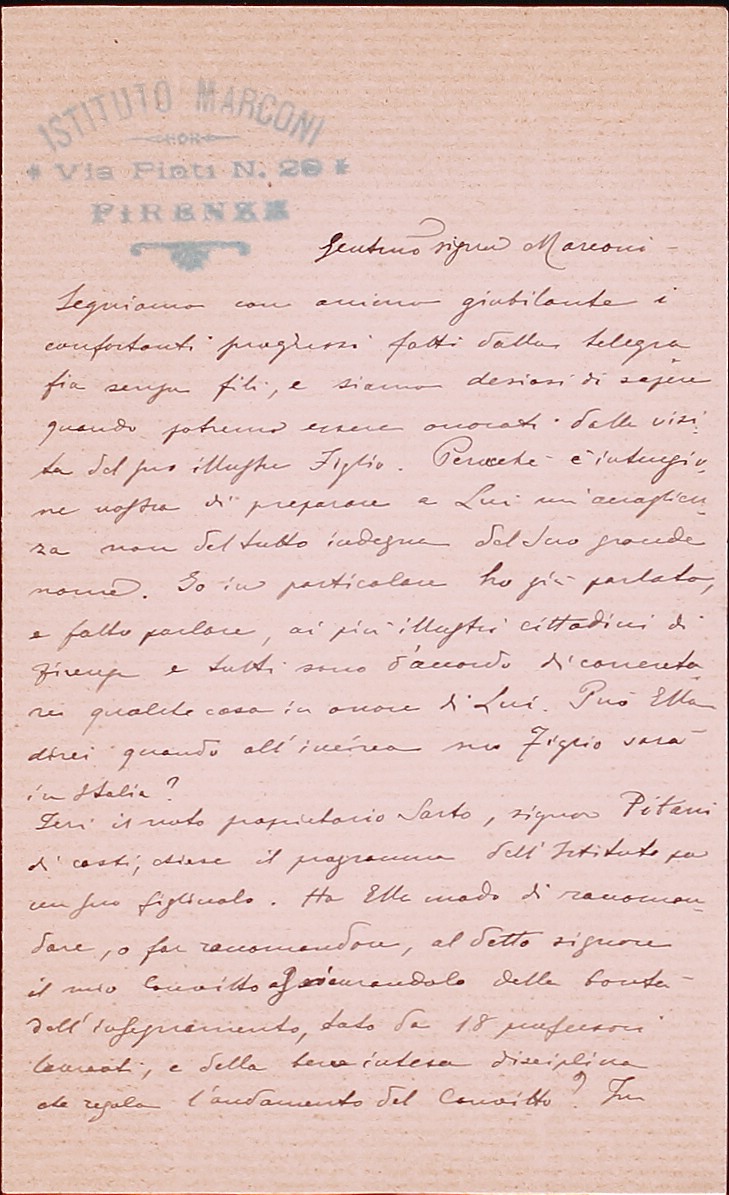 ISTITUTO MARCONI
Via Pinti N. 29
FIRENZE
Gentmo signor Marconi -
Seguiamo con animo giubilante i
confortanti progressi fatti dalla telegra
fia senza fili, e siamo desiosi di sapere
quando potremo essere onorati dalla visi-
ta del suo illustre Figlio. Perocchè è intenzio-
ne nostra di preparare a Lui un'accoglien-
za non del tutto indegna del Suo grande
nome. Io in particolare ho già parlato,
e fatto parlare, ai più illustri cittadini di
Firenze e tutti sono d'accordo di concreta
re qualche cosa in onore di Lui. Può Ella
dirci quando all'incirca suo Figlio sarà
in Italia?
Ieri il noto proprietario Sarto, signor Pitani
di costì, chiese il programma dell'Istituto per
un suo figliuolo. Ha Ella modo di raccoman-
dare, o far raccomandare, al detto signore
il mio Convitto assicurandolo della bontà
dell'insegnamento, dato da 18 professori
laureati, e della bene intesa disciplina
che regola l'andamento del Convitto? In